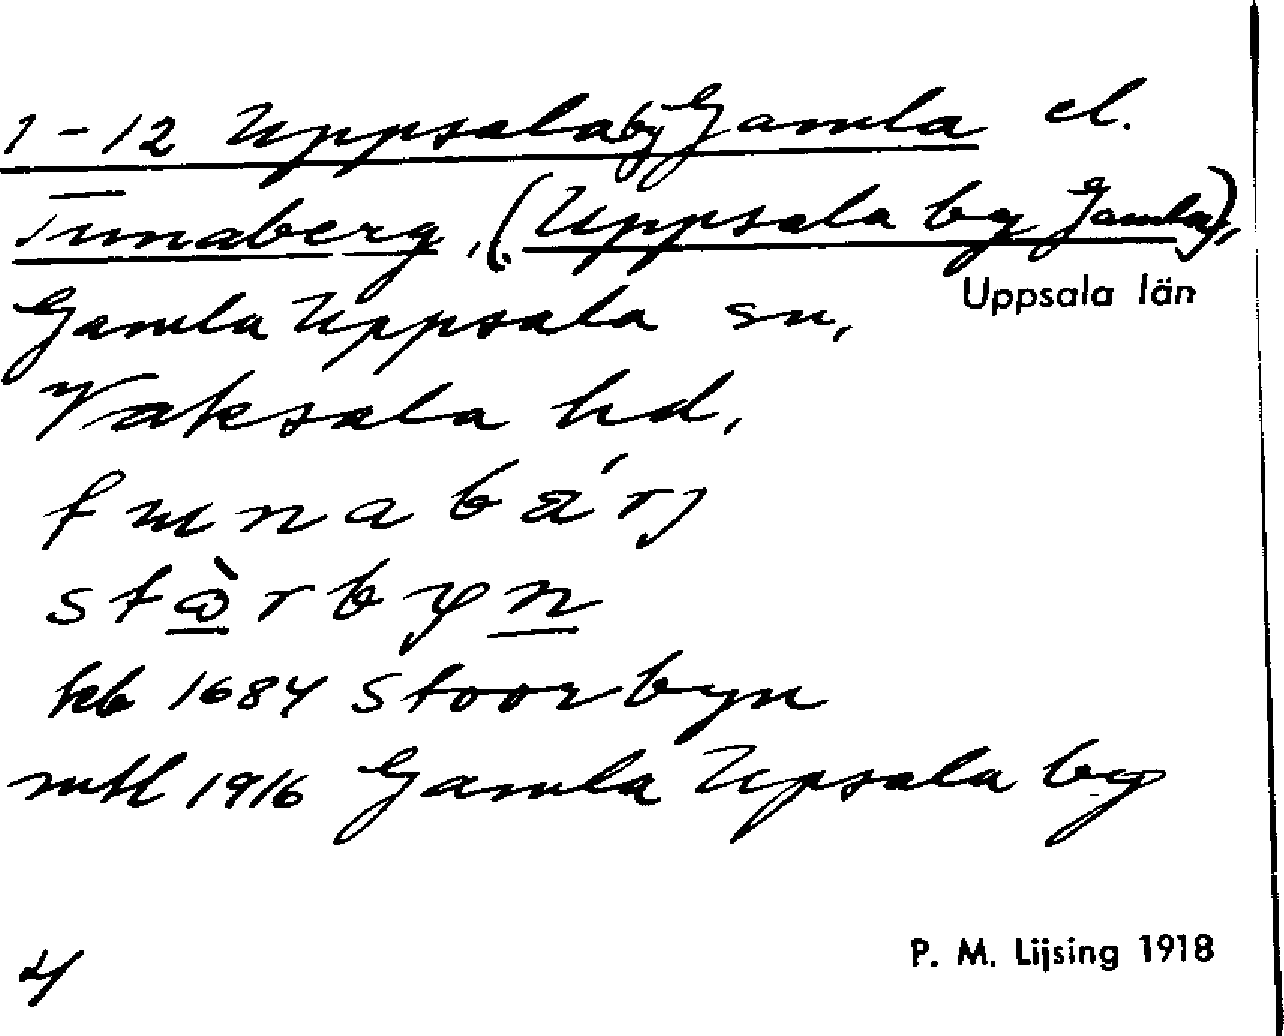 1-12 Uppsala by Gamla el.
Tunaberg, (Uppsala by Gamla),
Uppsala län
Gamla Uppsala sn,
Vaksala hd,
tɯnabä́rj
stɷ̀rbyn
keb 1684 Stoorbyn
mtl 1916 Gamla Upsala by
4
P. M. Lijsing 1918